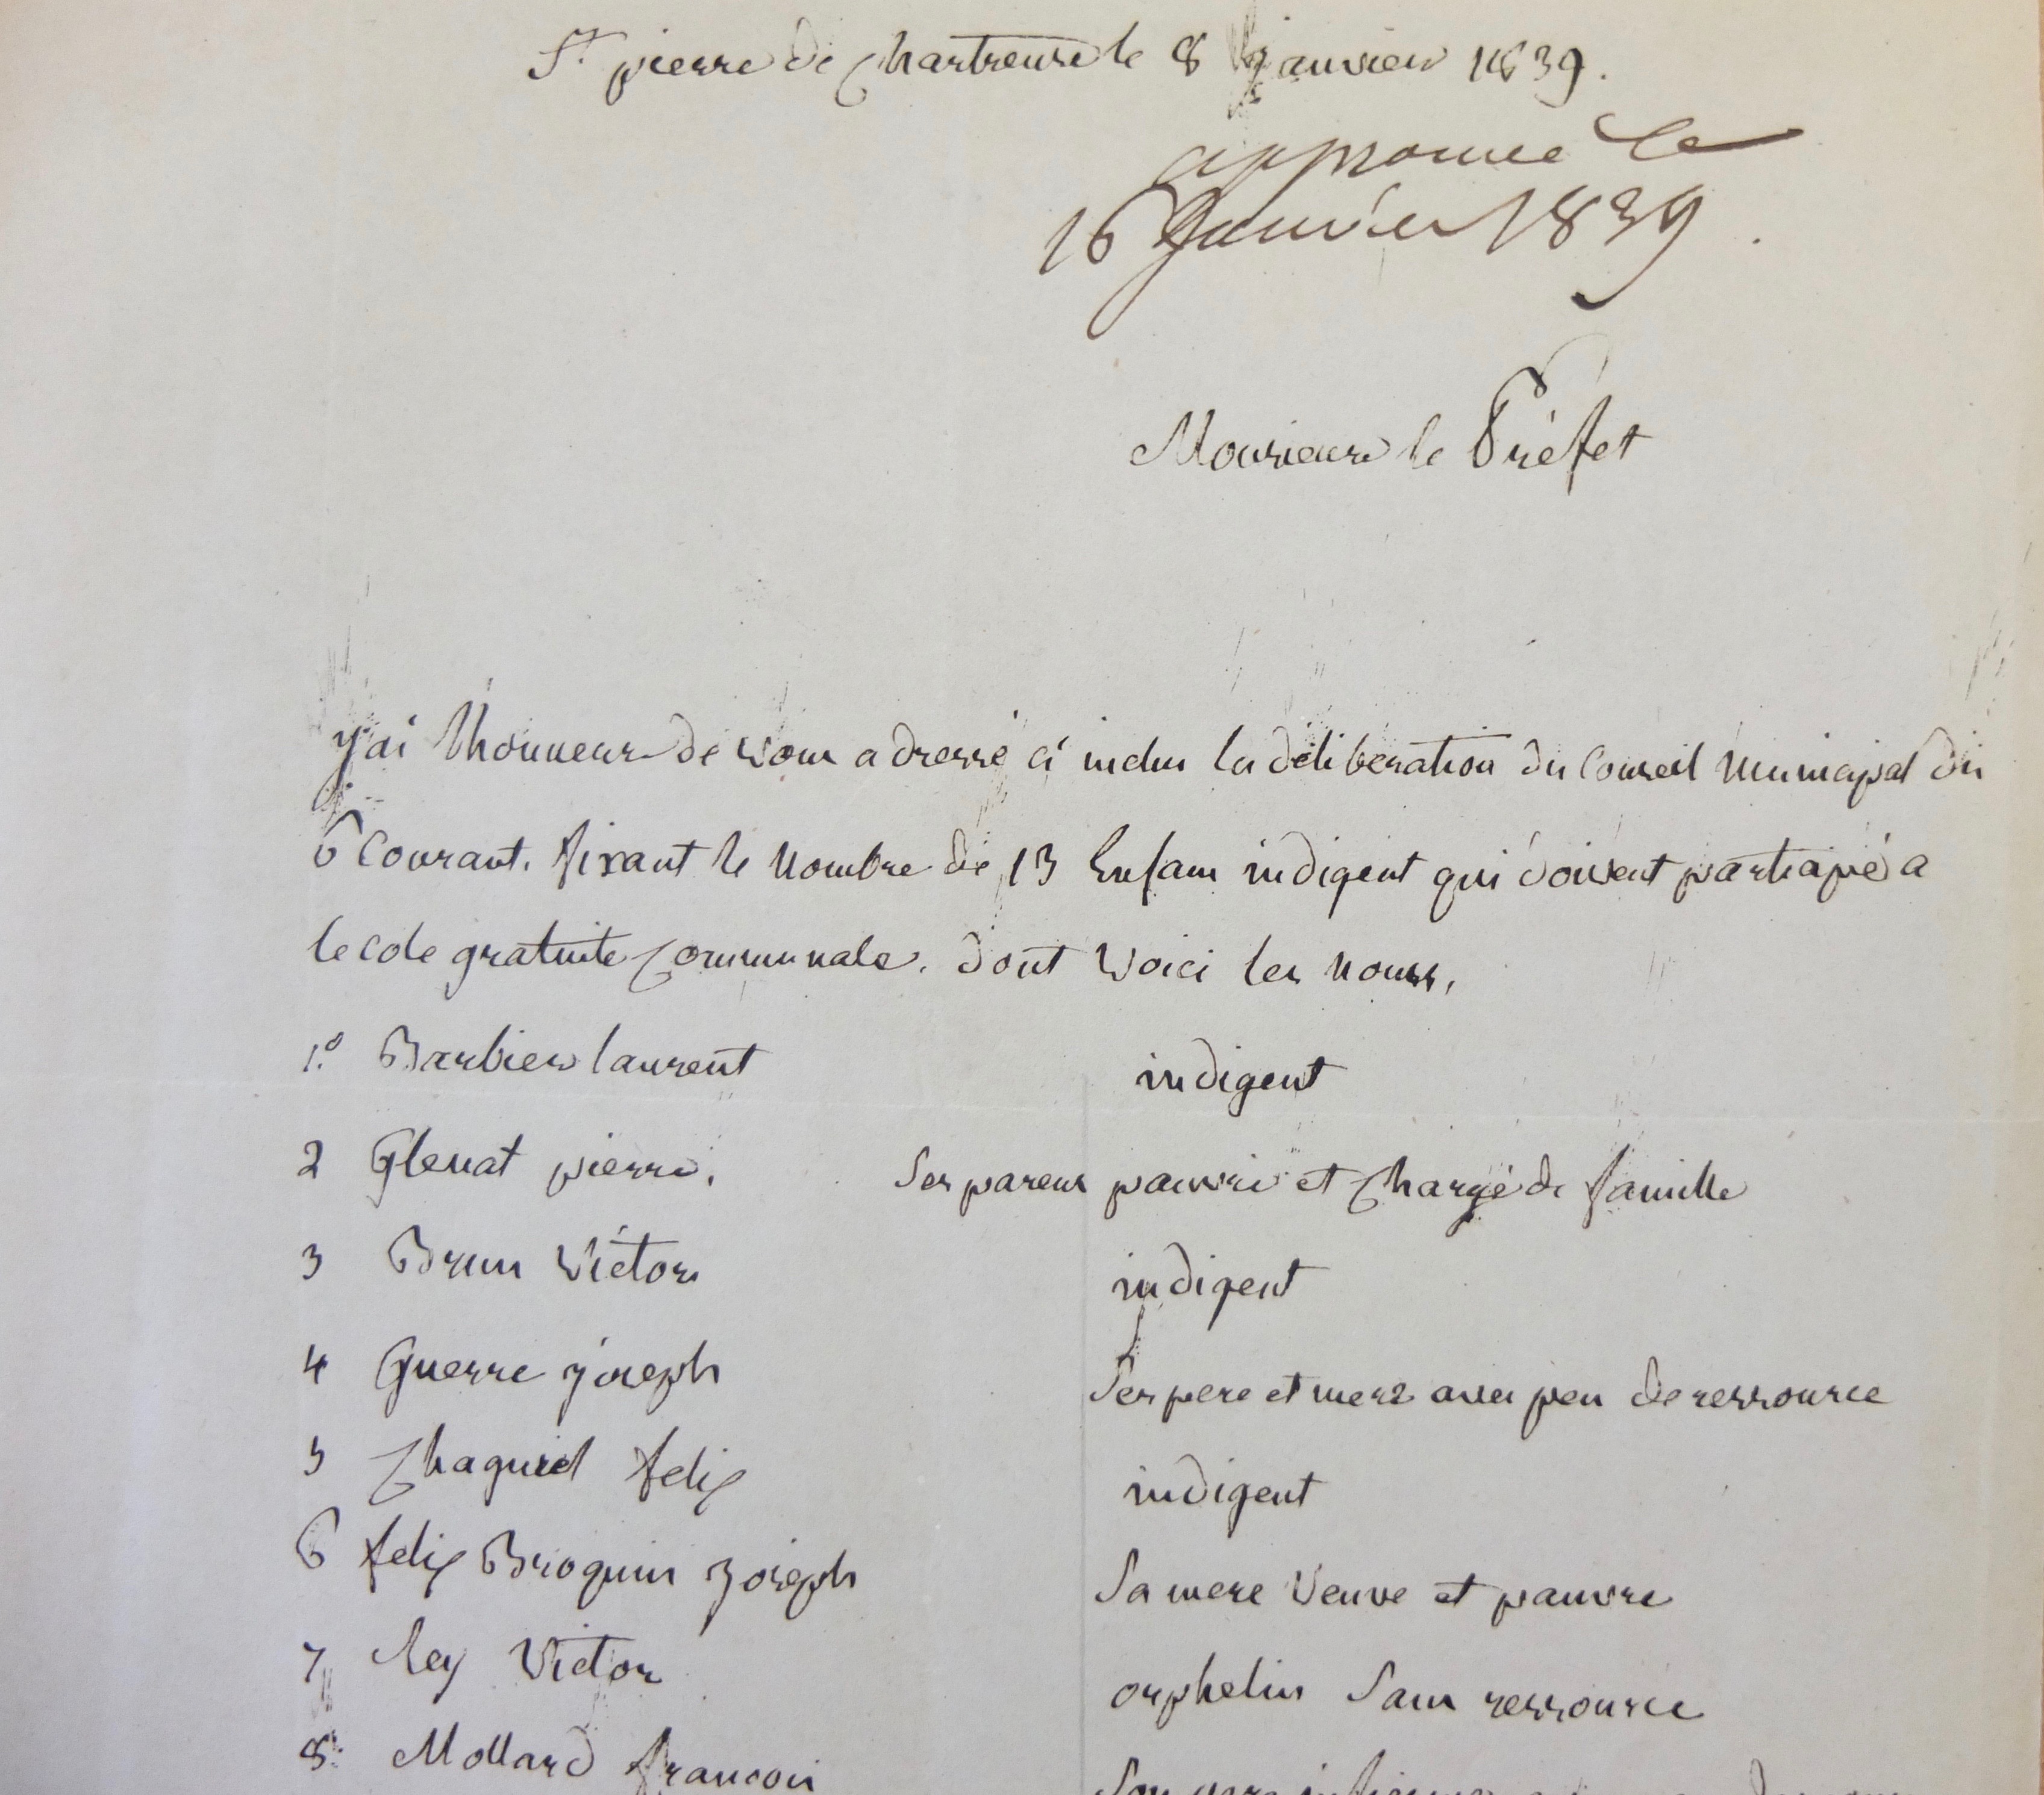 St. pierre de Chartreuse le 8 janvier 1839.
approuvé le
16 Janvier 1839
Monsieur le Préfet
j'ai lhonneur de vous adressé ci inclus la déliberation du Conseil Municipal du
6 Courant. fixant le Nombre de 13 Enfans indigent qui doivent participé a
lecole gratuite Communale. dont voici les noms,
1.o Barbier laurent indigent
2 Glenat pierre. Ses parens pauvre et Chargé de famille
3 Brun Victor indigent
4 Guerre joseph Ses pere et mere avec peu de ressource
5 felix indigent
6 felix Broquin joseph Sa mere Veuve et pauvre
7 Rey Victor orphelin Sans ressource
8: Mollard francois
Son pere infirme